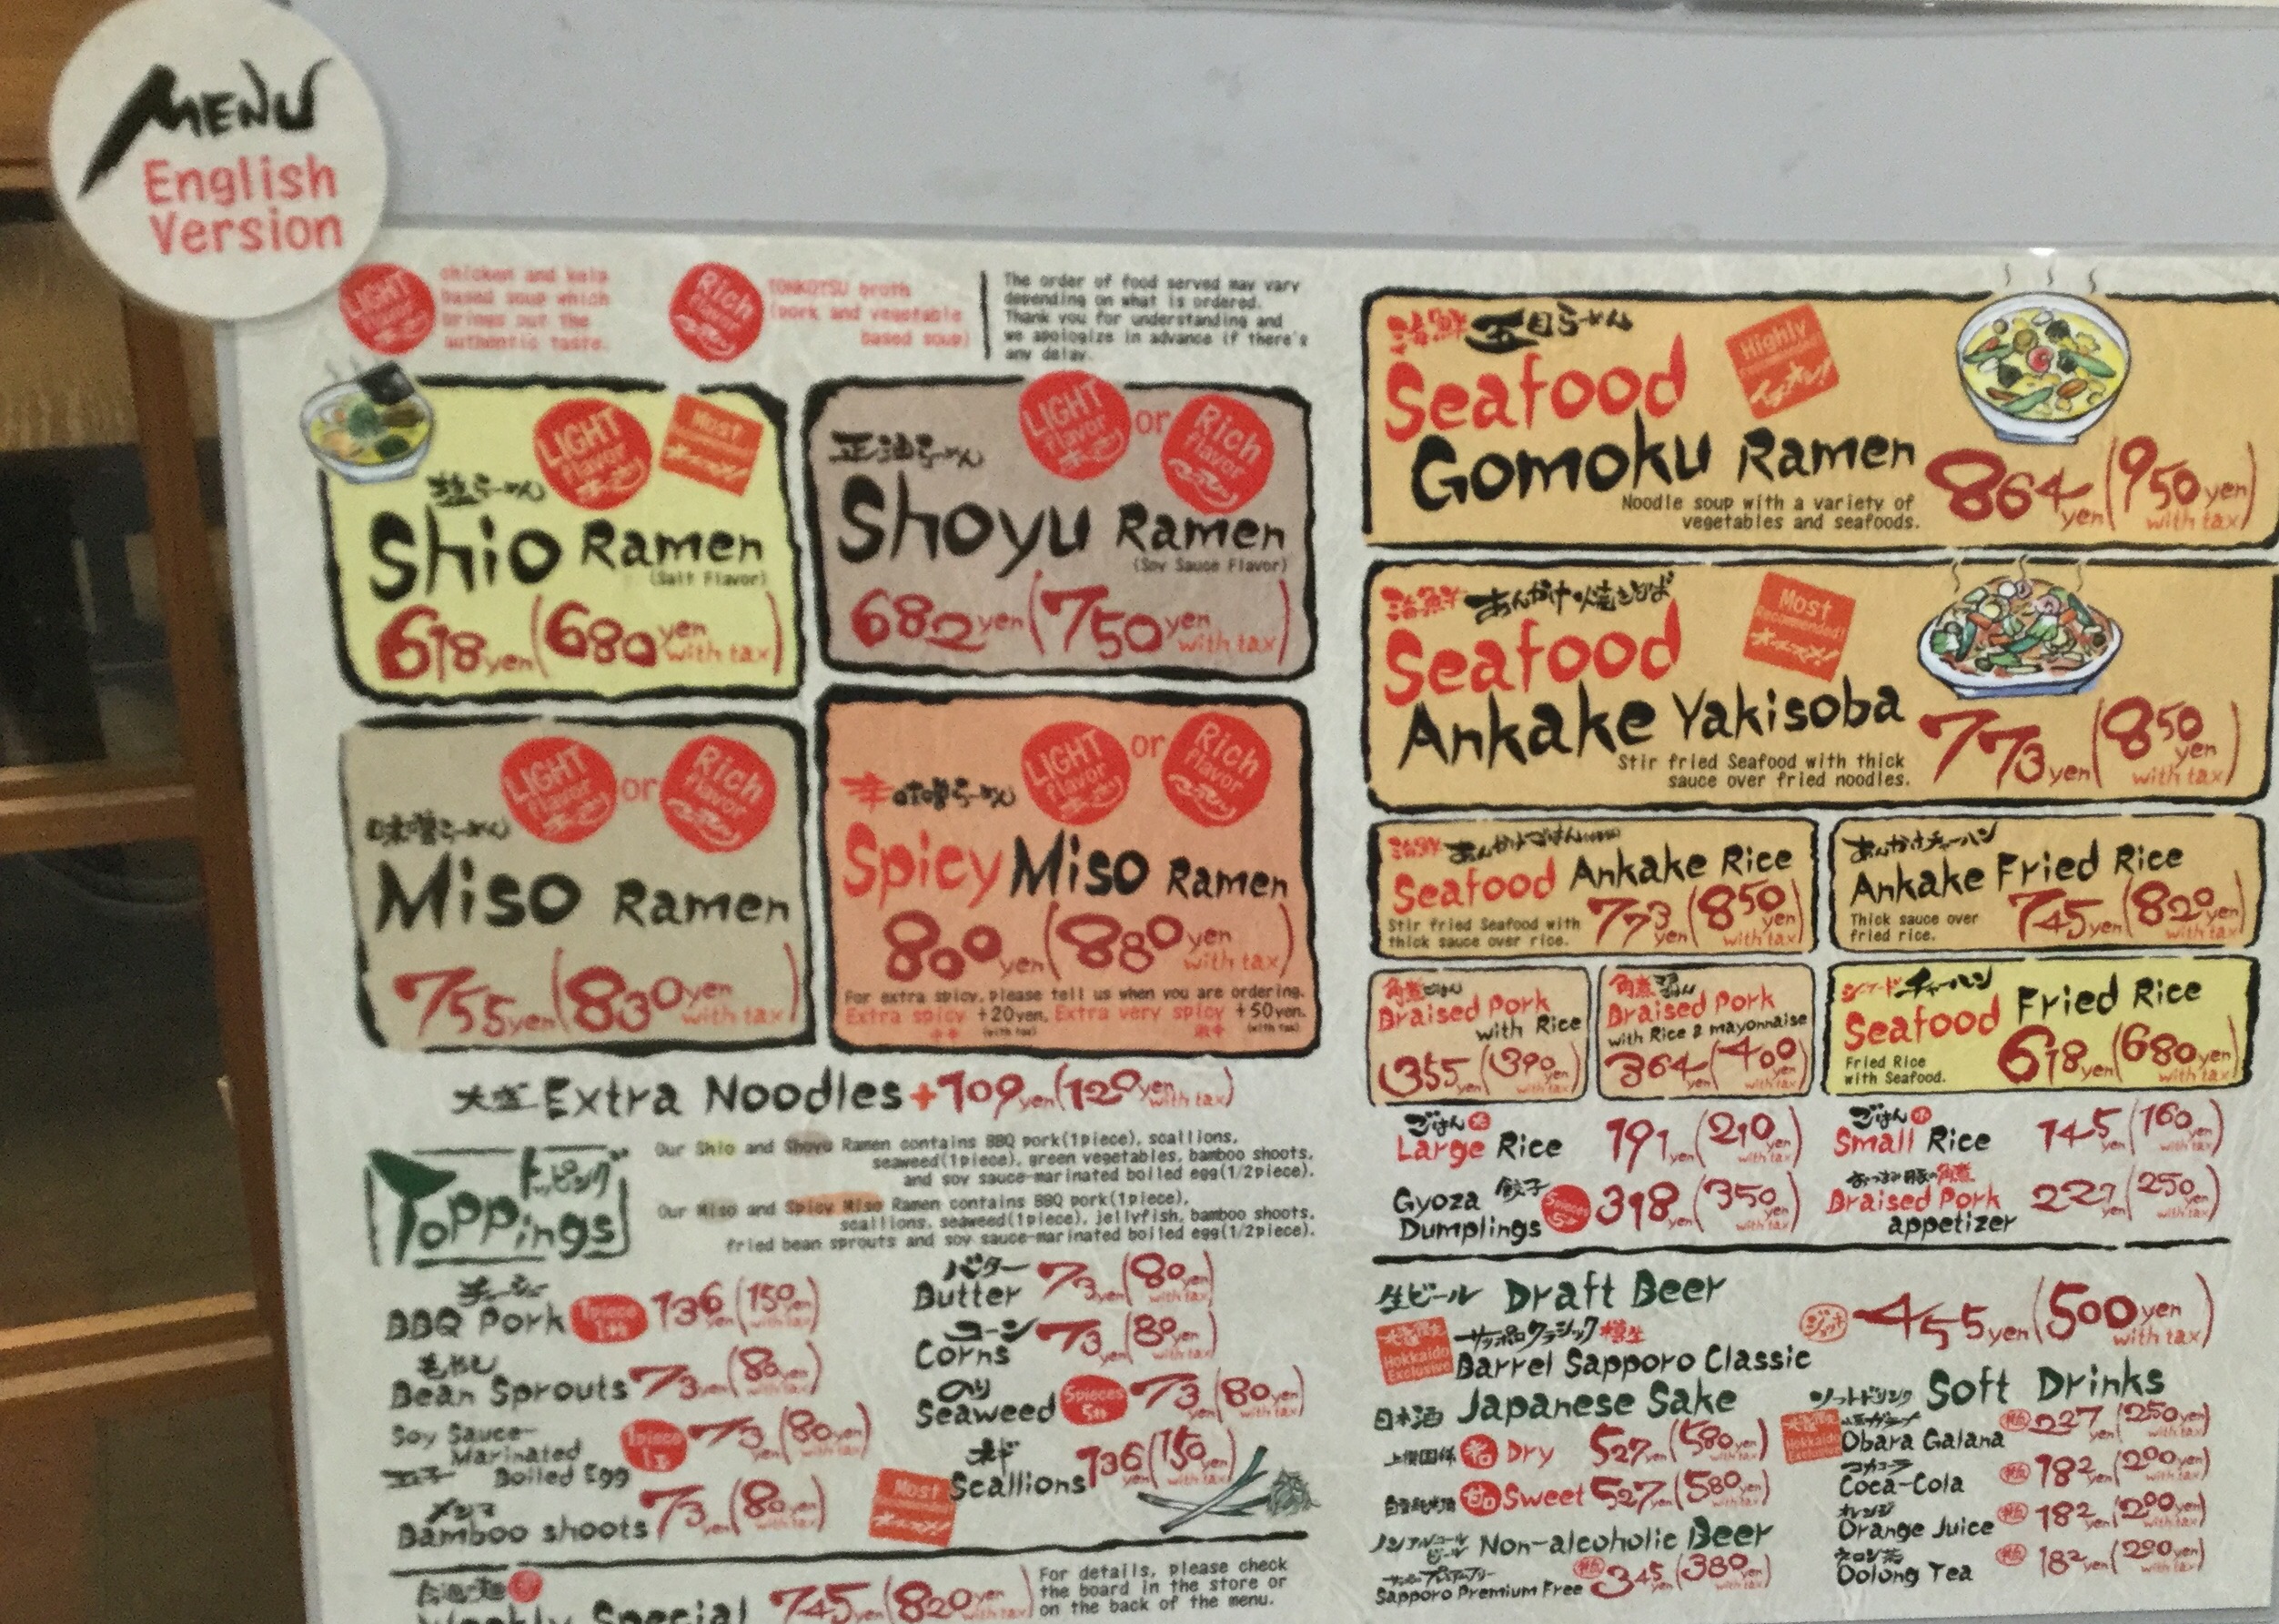 MENU
English
Version
LIGHT
chicken and kelp
based soup which
brings out the
authentic taste.
Rich
flavor
TONKOTSU broth
(pork and vegetable
based soup)
The order of food served may vary
depending on what is ordered.
Thank you for understanding and
we apologize in advance if there's
any delay.
LIGHT
flavor
Most
塩らーめん
Shio Ramen
(Salt Flavor)
618yen(680yen with tax)
LIGHT
flavor
or
Rich
flavor
正油らーめん
Shoyu Ramen
(Soy Sauce Flavor)
682yen(750yen with tax)
LIGHT
flavor
or
Rich
flavor
味噌らーめん
Miso Ramen
755yen(830yen with tax)
LIGHT
flavor
or
Rich
flavor
辛味噌らーめん
Spicy Miso Ramen
800yen(880yen with tax)
For extra spicy, please tell us when you are ordering.
Extra spicy +20yen, Extra very spicy +50yen.
(with tax) (with tax)
大盛 Extra Noodles+109yen(120yen with tax)
Toppings トッピング
Our Shio and Shoyu Ramen contains BBQ pork(1piece), scallions,
seaweed(1piece), green vegetables, bamboo shoots,
and soy sauce-marinated boiled egg(1/2piece).
Our Miso and Spicy Miso Ramen contains BBQ pork(1piece),
scallions, seaweed(1piece), jellyfish, bamboo shoots,
fried bean sprouts and soy sauce-marinated boiled egg(1/2piece).
チャーシュー
BBQ Pork 1piece 136yen(150yen with tax)
もやし
Bean Sprouts 73yen(80yen with tax)
Soy Sauce-
Marinated
玉子 Boiled Egg 1piece 73yen(80yen with tax)
メンマ
Bamboo shoots 73yen(80yen with tax)
バター
Butter 73yen(80yen with tax)
コーン
Corns 73yen(80yen with tax)
のり
Seaweed 5pieces 73yen(80yen with tax)
ネギ
Scallions 136yen(150yen with tax)
Most
Weekly Special 745yen(820yen with tax)
For details, please check
the board in the store or
on the back of the menu.
海鮮五目らーめん
Highly
Seafood
Gomoku Ramen
Noodle soup with a variety of
vegetables and seafoods.
864yen(950yen with tax)
海鮮あんかけ焼きそば
Most
Recommended!
Seafood
Ankake Yakisoba
Stir fried Seafood with thick
sauce over fried noodles.
773yen(850yen with tax)
海鮮あんかけごはん
Seafood Ankake Rice
Stir fried Seafood with
thick sauce over rice.
773yen(850yen with tax)
あんかけチャーハン
Ankake Fried Rice
Thick sauce over
fried rice.
745yen(820yen with tax)
角煮ごはん
Braised Pork
with Rice
355yen(390yen with tax)
角煮
Braised Pork
with Rice & mayonnaise
364yen(400yen with tax)
シーフードチャーハン
Seafood Fried Rice
Fried Rice
with Seafood.
618yen(680yen with tax)
ごはん
Large Rice 191yen(210yen with tax)
ごはん
Small Rice 145yen(160yen with tax)
Gyoza 餃子
Dumplings 5pieces 318yen(350yen with tax)
おつまみ豚の角煮
Braised Pork
appetizer
227yen(250yen with tax)
生ビール Draft Beer
Hokkaido
Exclusive
サッポロクラシック樽生
Barrel Sapporo Classic
ジョッキ 455yen(500yen with tax)
日本酒 Japanese Sake
Dry 527yen(580yen with tax)
Sweet 527yen(580yen with tax)
ノンアルコールビール Non-alcoholic Beer
Sapporo Premium Free 345yen(380yen with tax)
ソフトドリンク Soft Drinks
Hokkaido
Exclusive
Obara Galana 227yen(250yen with tax)
コカコーラ
Coca-Cola 182yen(200yen with tax)
オレンジ
Orange Juice 182yen(200yen with tax)
ウーロン茶
Oolong Tea 182yen(200yen with tax)